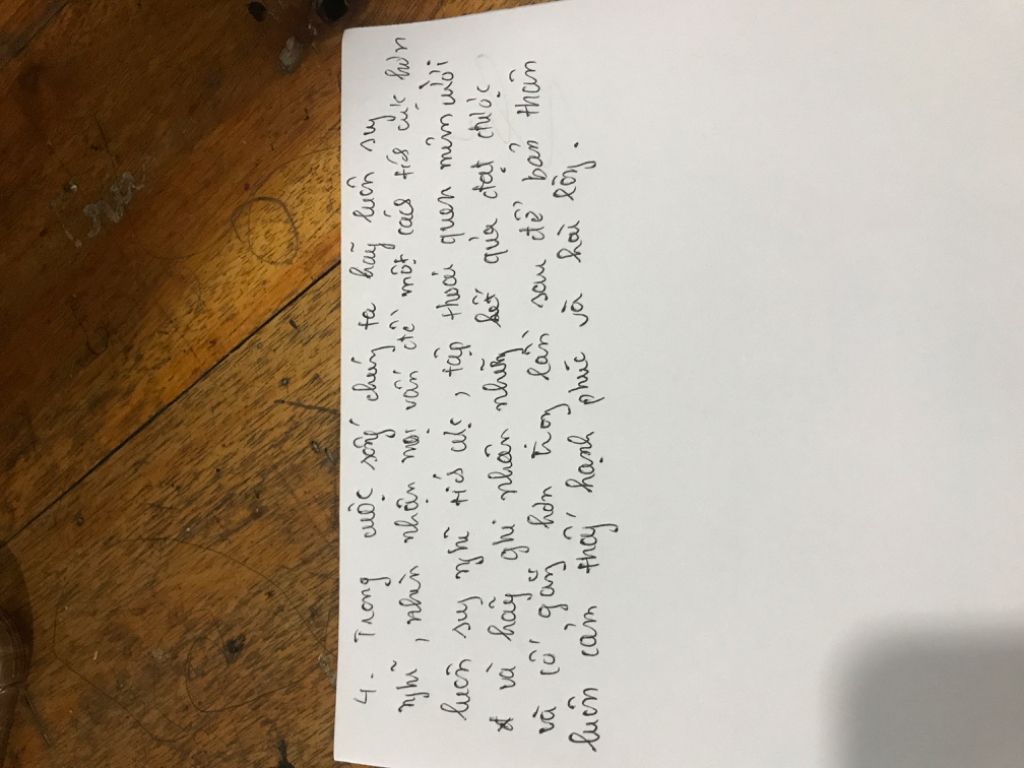 4. Trong cuộc sống chúng ta hãy luôn suy
nghĩ, nhìn nhận mọi vấn đề một cách tích cực hơn
luôn suy nghĩ tích cực, tập thói quen mỉm cười
và hãy ghi nhận những kết quả đạt được
và cố gắng hơn trong lần sau để bản thân
luôn cảm thấy hạnh phúc và hài lòng.